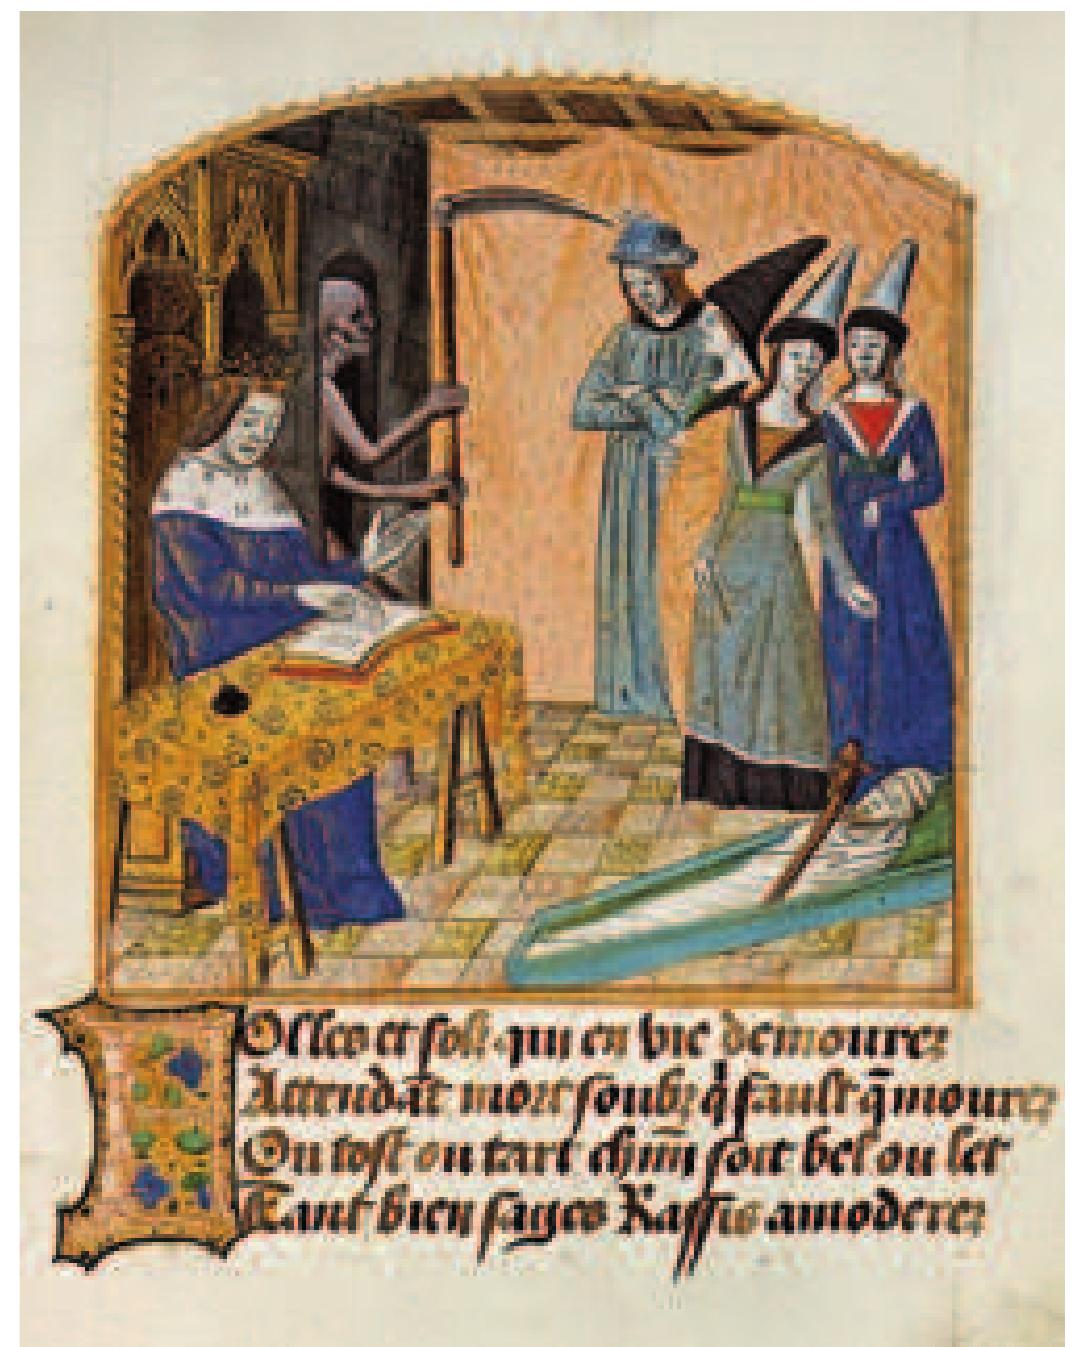 Olles et folz qui en vie demourez
Attendāt mort soubz q̄ fault q̄ mourez
Ou tost ou tart chūn soit bel ou let
Tant bien sages Rassis amoderez